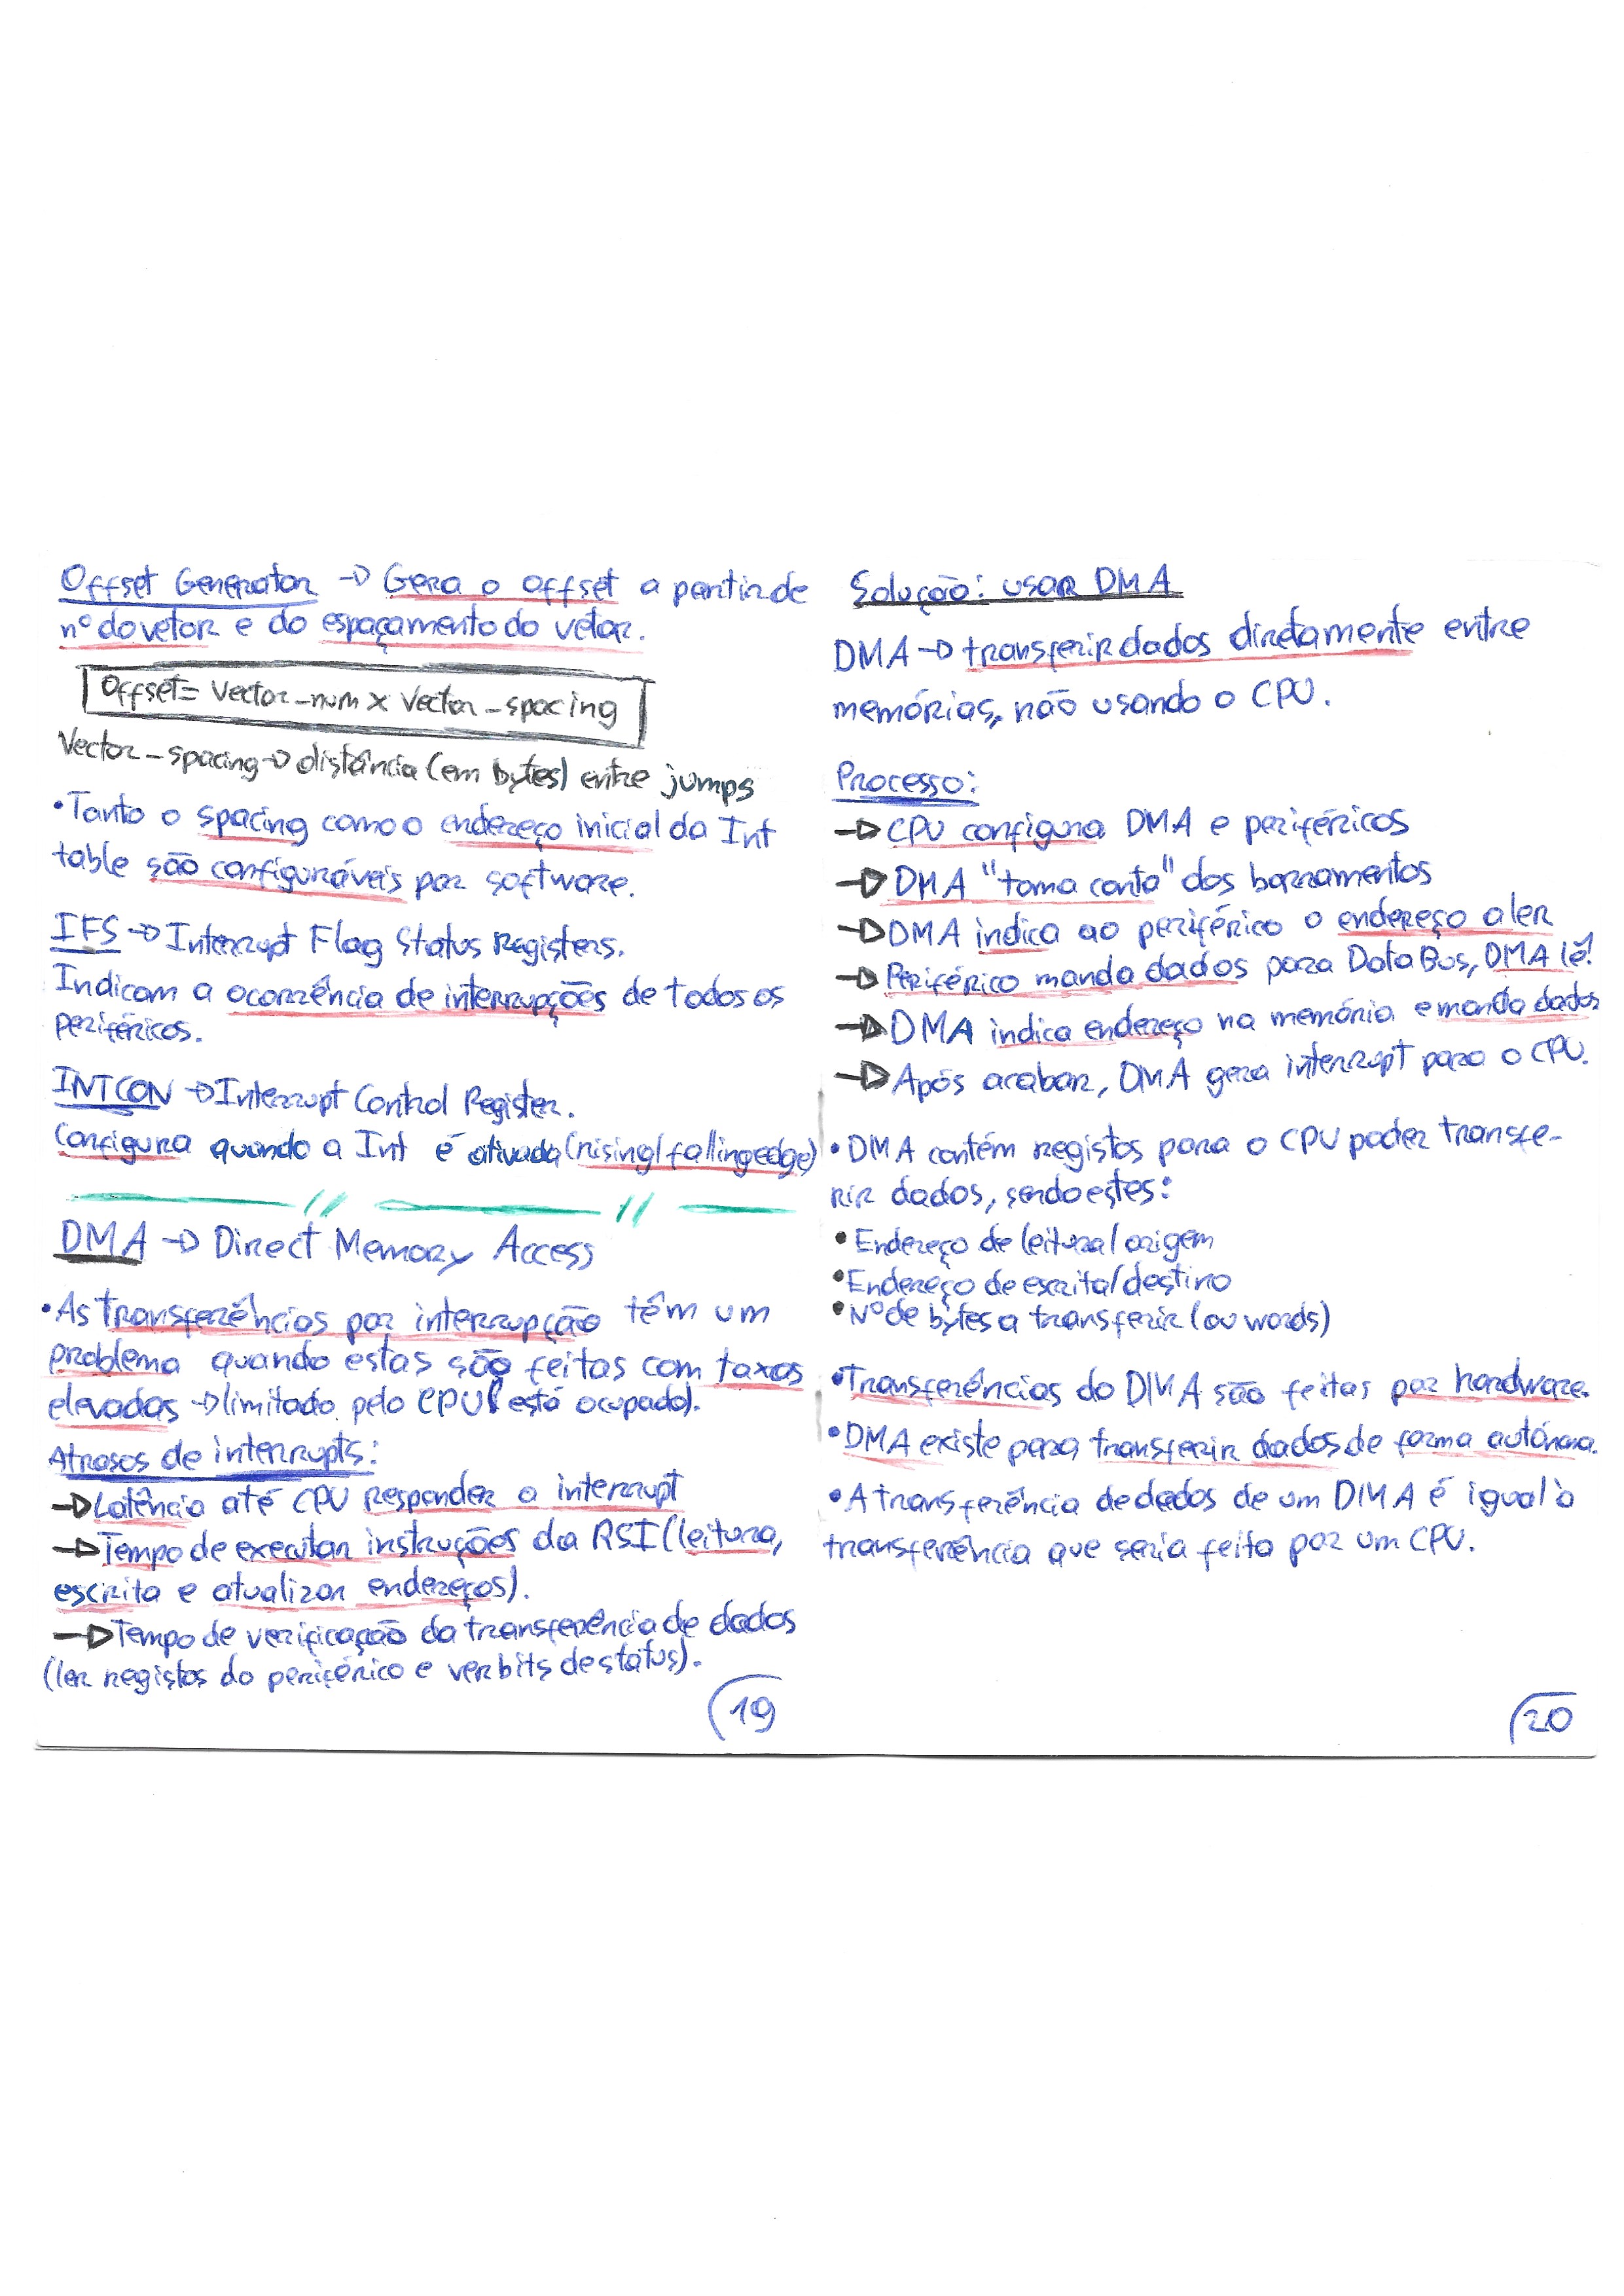 Offset Generator → Gera o offset a partir de
nº do vetor e do espaçamento do vetor.
Offset = Vector_num x Vector_spacing
Vector_spacing → distância (em bytes) entre jumps
• Tanto o spacing como o endereço inicial da Int
table são configuráveis por software.
IFS → Interrupt Flag Status Registers.
Indicam a ocorrência de interrupções de todos os
periféricos.
INTCON → Interrupt Control Register.
Configura quando a Int é ativada (rising/falling edge)
DMA → Direct Memory Access
• As transferências por interrupção têm um
problema quando estas são feitas com taxas
elevadas → limitado pelo CPU (está ocupado).
Atrasos de interrupts:
→ Latência até CPU responder a interrupt
→ Tempo de executar instruções da RSI (leitura,
escrita e atualizar endereços).
→ Tempo de verificação da transferência de dados
(ler registos do periférico e ver bits de status).
19
Solução: usar DMA
DMA → transferir dados diretamente entre
memórias, não usando o CPU.
Processo:
→ CPU configura DMA e periféricos
→ DMA "toma conta" dos barramentos
→ DMA indica ao periférico o endereço a ler
→ Periférico manda dados para Data Bus, DMA lê!
→ DMA indica endereço na memória e manda dados
→ Após acabar, DMA gera interrupt para o CPU.
• DMA contém registos para o CPU poder transfe-
rir dados, sendo estes:
• Endereço de leitura/origem
• Endereço de escrita/destino
• Nº de bytes a transferir (ou words)
• Transferências do DMA são feitas por hardware.
• DMA existe para transferir dados de forma autónoma.
• A transferência de dados de um DMA é igual à
transferência que seria feita por um CPU.
20